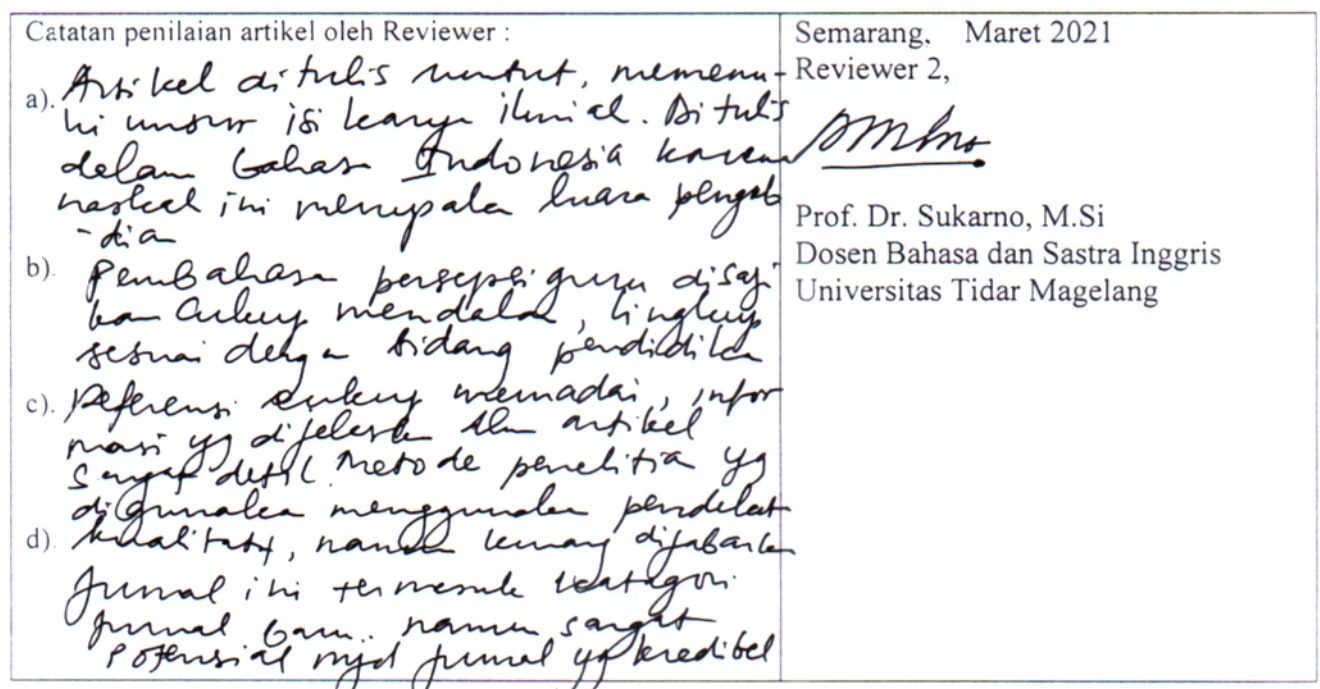 Catatan penilaian artikel oleh Reviewer :
a). Artikel ditulis runtut, memenu-
hi unsur isi karya ilmiah. Ditulis
dalam bahasa Indonesia karena
naskah ini merupaka luara pengab
-dia
b). Pembahasa persepsi guru disaji
kan cukup mendalam, lingkup
sesuai denga bidang pendidika
c). Referensi cukup memadai, infor
masi yg dijelaska dlm artikel
sangat detil. Metode penelitia yg
digunaka menggunaka pendekat
d). kualitatif, namun kurang dijabarka
Jurnal ini termasuk katagori
jurnal baru.. namun sangat
potensial mjd jurnal yg kredibel
Semarang, Maret 2021
Reviewer 2,
Prof. Dr. Sukarno, M.Si
Dosen Bahasa dan Sastra Inggris
Universitas Tidar Magelang